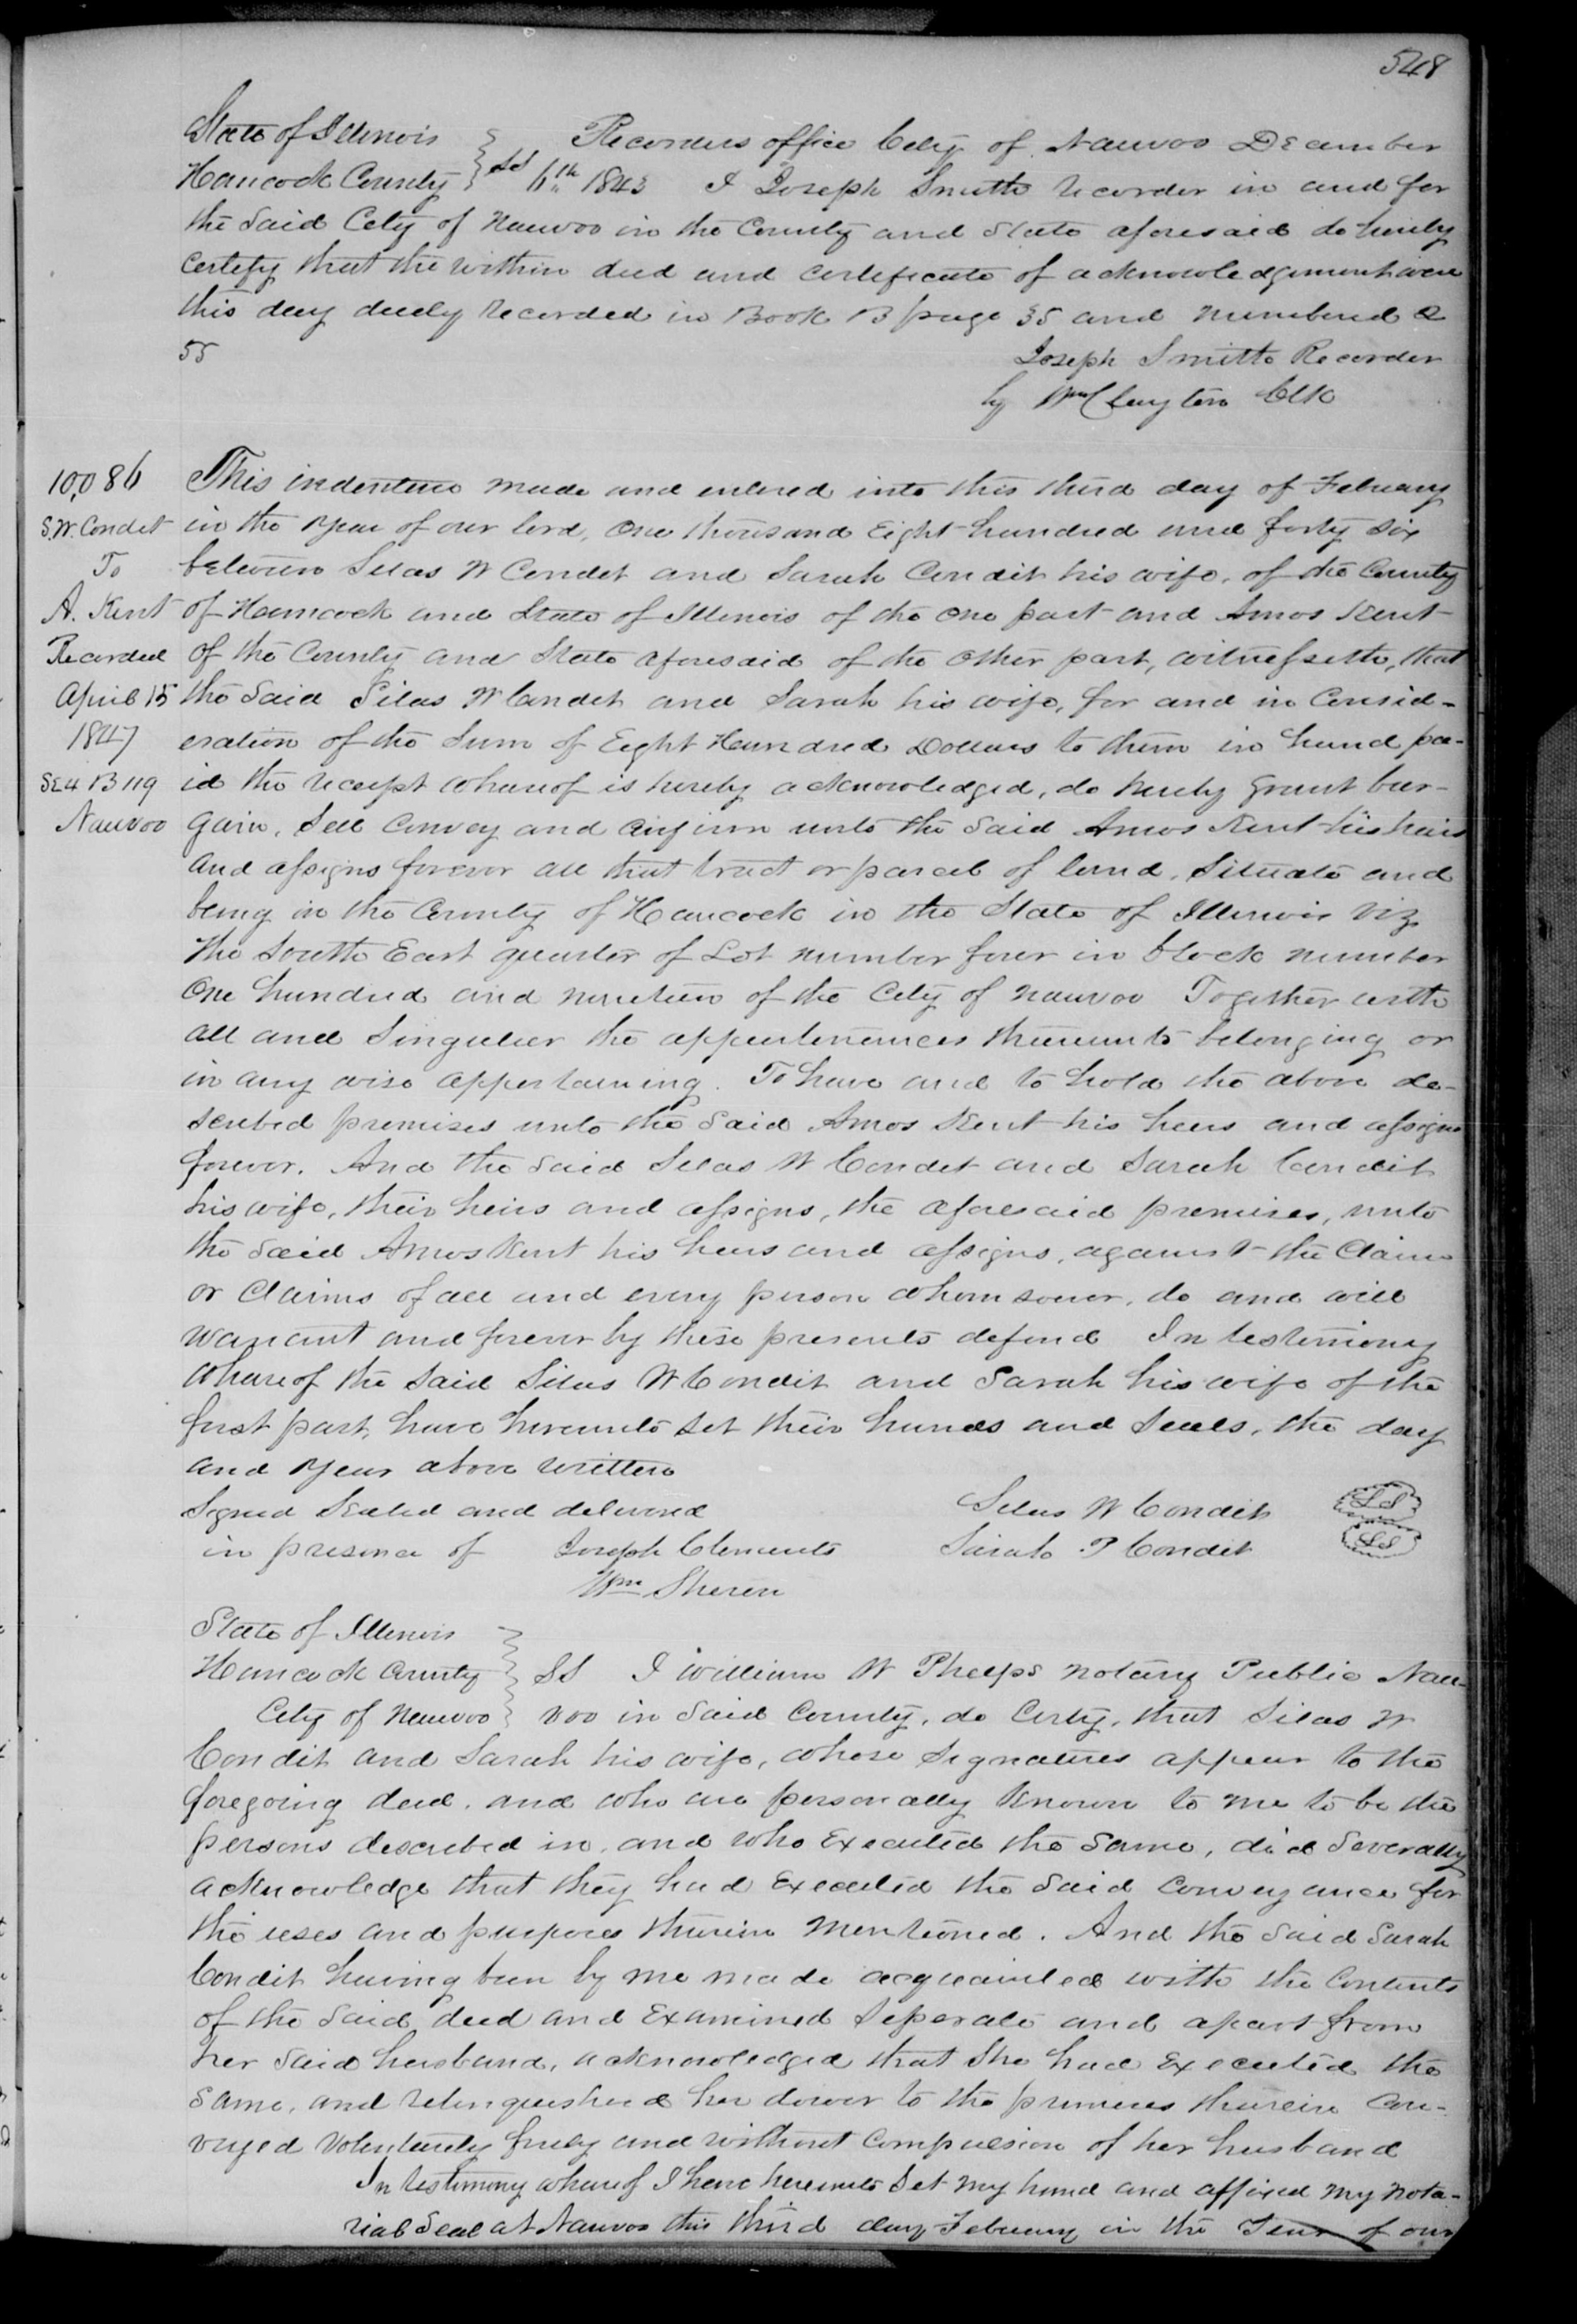 548
State of Illinois
Hancock County } SS Recorders office City of Nauvoo December
6th 1843 I Joseph Smith Recorder in and for
the Said City of Nauvoo in the County and State aforesaid do hereby
Certify that the within deed and Certificate of acknowledgement were
this day duely Recorded in Book B page 35 and numbered
55
Joseph Smith Recorder
by Wm Clayton Clk
10,086
S.W. Condit
To
A. Kent
Recorded
April 15
1847
SE 4 B 119
Nauvoo
This indenture made and entered into this third day of Febuary
in the year of our lord, One thousand Eight hundred and forty Six
between Silas W Condit and Sarah Condit his wife, of the County
of Hancock and State of Illinois of the one part and Amos Kent
of the County and State aforesaid of the other part, witnesseth, that
the Said Silas W Condit and Sarah his wife, for and in Consid-
eration of the Sum of Eight Hundred Dollars to them in hand pa-
id the receipt whereof is hereby acknowledged, do hereby grant bar-
gain, Sell Convey and Confirm unto the Said Amos Kent his heirs
and assigns forever all that tract or parcel of land, Situate and
being in the County of Hancock in the State of Illinois Viz
The South East quarter of Lot number four in block number
One hundred and nineteen of the City of Nauvoo Together with
all and Singuler the appurtenances thereunto belonging or
in any wise appertaining. To have and to hold the above de-
scribed premises unto the Said Amos Kent his heirs and assigns
forever. And the Said Silas W Condit and Sarah Condit
his wife, their heirs and assigns, the aforesaid premises, unto
the Said Amos Kent his heirs and assigns, against the Claim
or Claims of all and every person whomsoever, do and will
warrant and forever by these presents defend In testimony
whereof the Said Silas W Condit and Sarah his wife of the
first part, have hereunto Set their hands and Seals, the day
and year above written
Signed Sealed and delivered Silas W Condit LS
in presence of Joseph Clements Sarah P Condit LS
Wm Sheren
State of Illinois
Hancock County } SS I William W Phelps notary Public Nau-
City of Nauvoo } voo in Said County, do Certy, that Silas W
Condit and Sarah his wife, whose Signatures appear to the
foregoing deed, and who are personally Known to me to be the
persons described in, and who Executed the Same, did Severally
acknowledge that they had Executed the Said Conveyance for
the uses and purposes therein Mentioned. And the Said Sarah
Condit having been by me made acquainted with the Contents
of the Said deed and Examined Seperate and apart from
her Said husband, acknowledged that She had Executed the
Same, and relinquished her dower to the premises therein Con-
veyed Voluntarily freely and without Compulsion of her husband
In testimony whereof I have hereunto Set my hand and affixed my Nota-
rial Seal at Nauvoo this third day Febuary in the Year of our